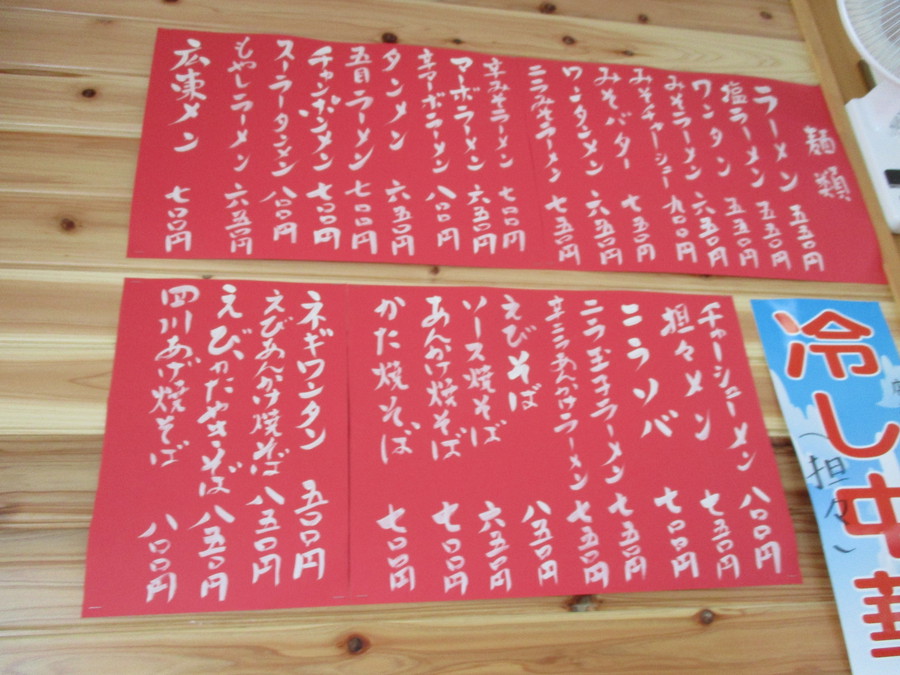 麺類
ラーメン 五五〇円
塩ラーメン 五五〇円
ワンタン 五五〇円
みそラーメン 六五〇円
みそチャーシュー 九〇〇円
みそバター 七五〇円
ワンタンメン 六五〇円
ニラみそラーメン 七五〇円
辛みそラーメン 七〇〇円
マーボラーメン 六五〇円
辛マーボラーメン 八〇〇円
タンメン 六五〇円
五目ラーメン 七〇〇円
チャンポンメン 七〇〇円
スーラータンメン 八〇〇円
もやしラーメン 六五〇円
広東メン 七〇〇円
チャーシューメン 八〇〇円
担々メン 七五〇円
ニラソバ 七〇〇円
ニラ玉子ラーメン 七五〇円
辛ニラあんかけラーメン 七五〇円
えびそば 八五〇円
ソース焼そば 六五〇円
あんかけ焼そば 七〇〇円
かた焼そば 七〇〇円
ネギワンタン 五〇〇円
えびあんかけ焼そば 八五〇円
えびかたやきそば 八五〇円
四川あげ焼そば 八〇〇円
冷し中華
(担々)